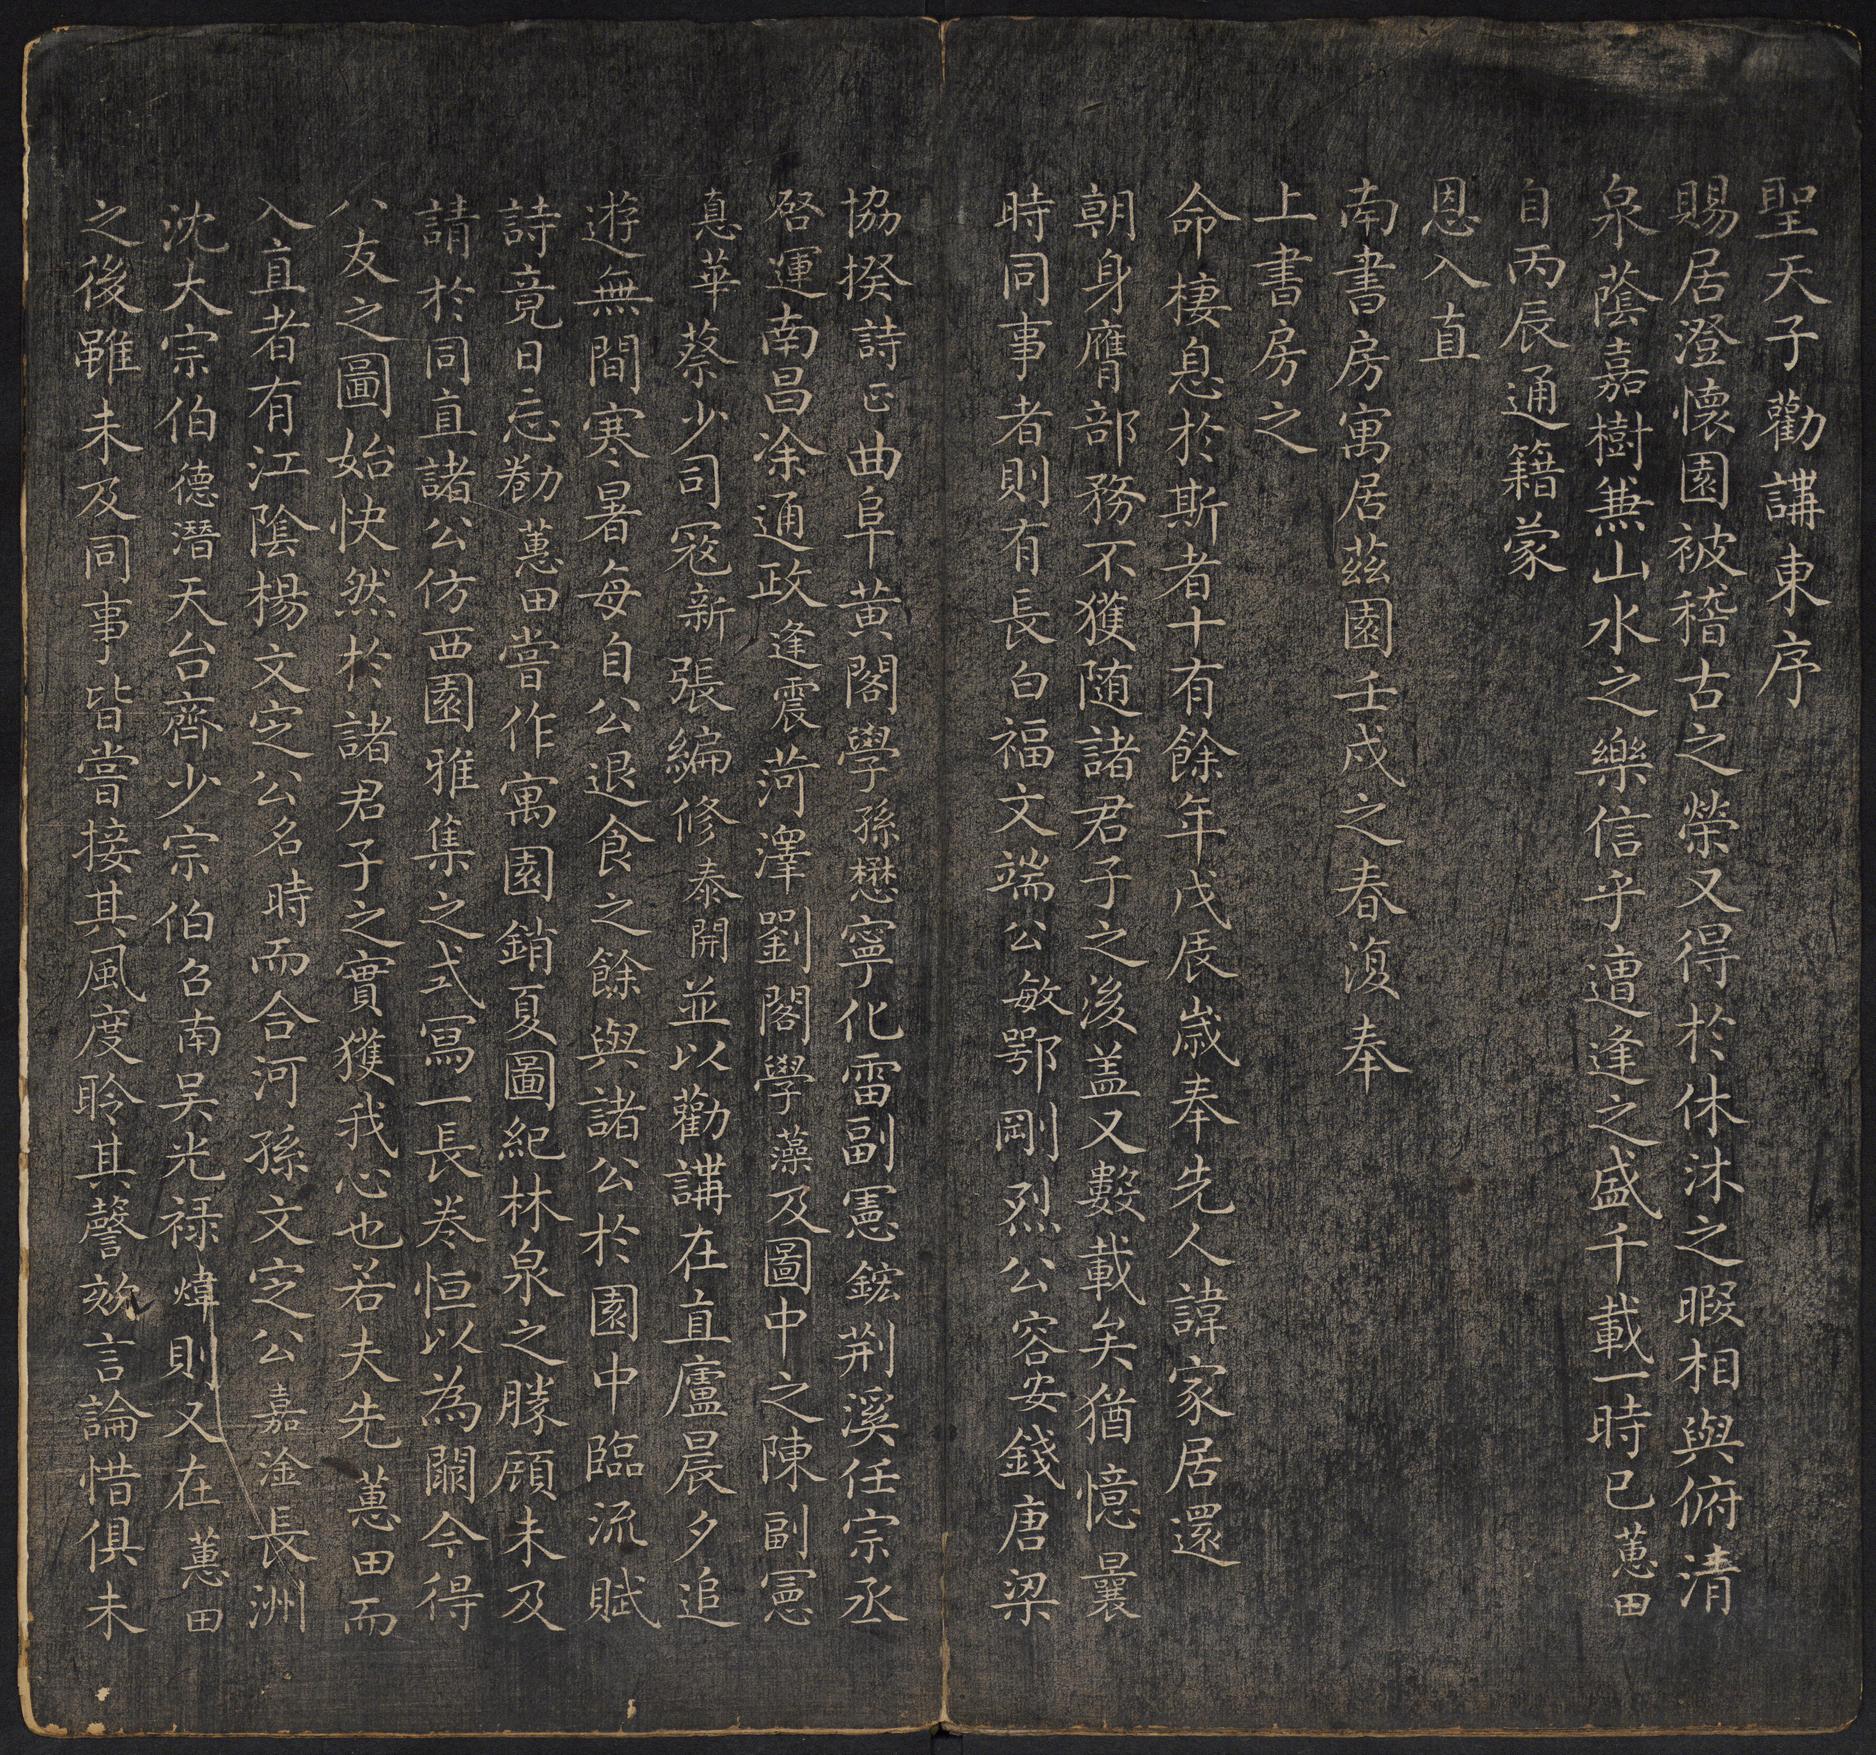 聖天子勸講東序
賜居澄懷園被稽古之榮又得於休沐之暇相與俯清
泉蔭嘉樹兼山水之樂信乎遭逢之盛千載一時已蕙田
自丙辰通籍蒙
恩入直
南書房寓居茲園壬戌之春復奉
上書房之
命棲息於斯者十有餘年戊辰歲奉先人諱家居還
朝身膺部務不獲随諸君子之後盖又數載矣猶憶曩
時同事者則有長白福文端公敏鄂剛烈公容安錢唐梁
協揆詩正曲阜黃閣學孫懋寧化雷副憲鋐荆溪任宗丞
啓運南昌涂通政逢震菏澤劉閣學藻及圖中之陳副憲
惪華蔡少司冦新張編修泰開並以勸講在直廬晨夕追
遊無間寒暑每自公退食之餘與諸公於園中臨流賦
詩竟日忘勌蕙田嘗作寓園銷夏圖紀林泉之勝顧未及
請於同直諸公仿西園雅集之式寫一長卷恒以為闕今得
八友之圖始快然於諸君子之實獲我心也若夫先蕙田而
入直者有江陰楊文定公名時而合河孫文定公嘉淦長洲
沈大宗伯德潛天台齊少宗伯召南吴光禄煒則又在蕙田
之後雖未及同事皆嘗接其風度聆其謦欬言論惜俱未